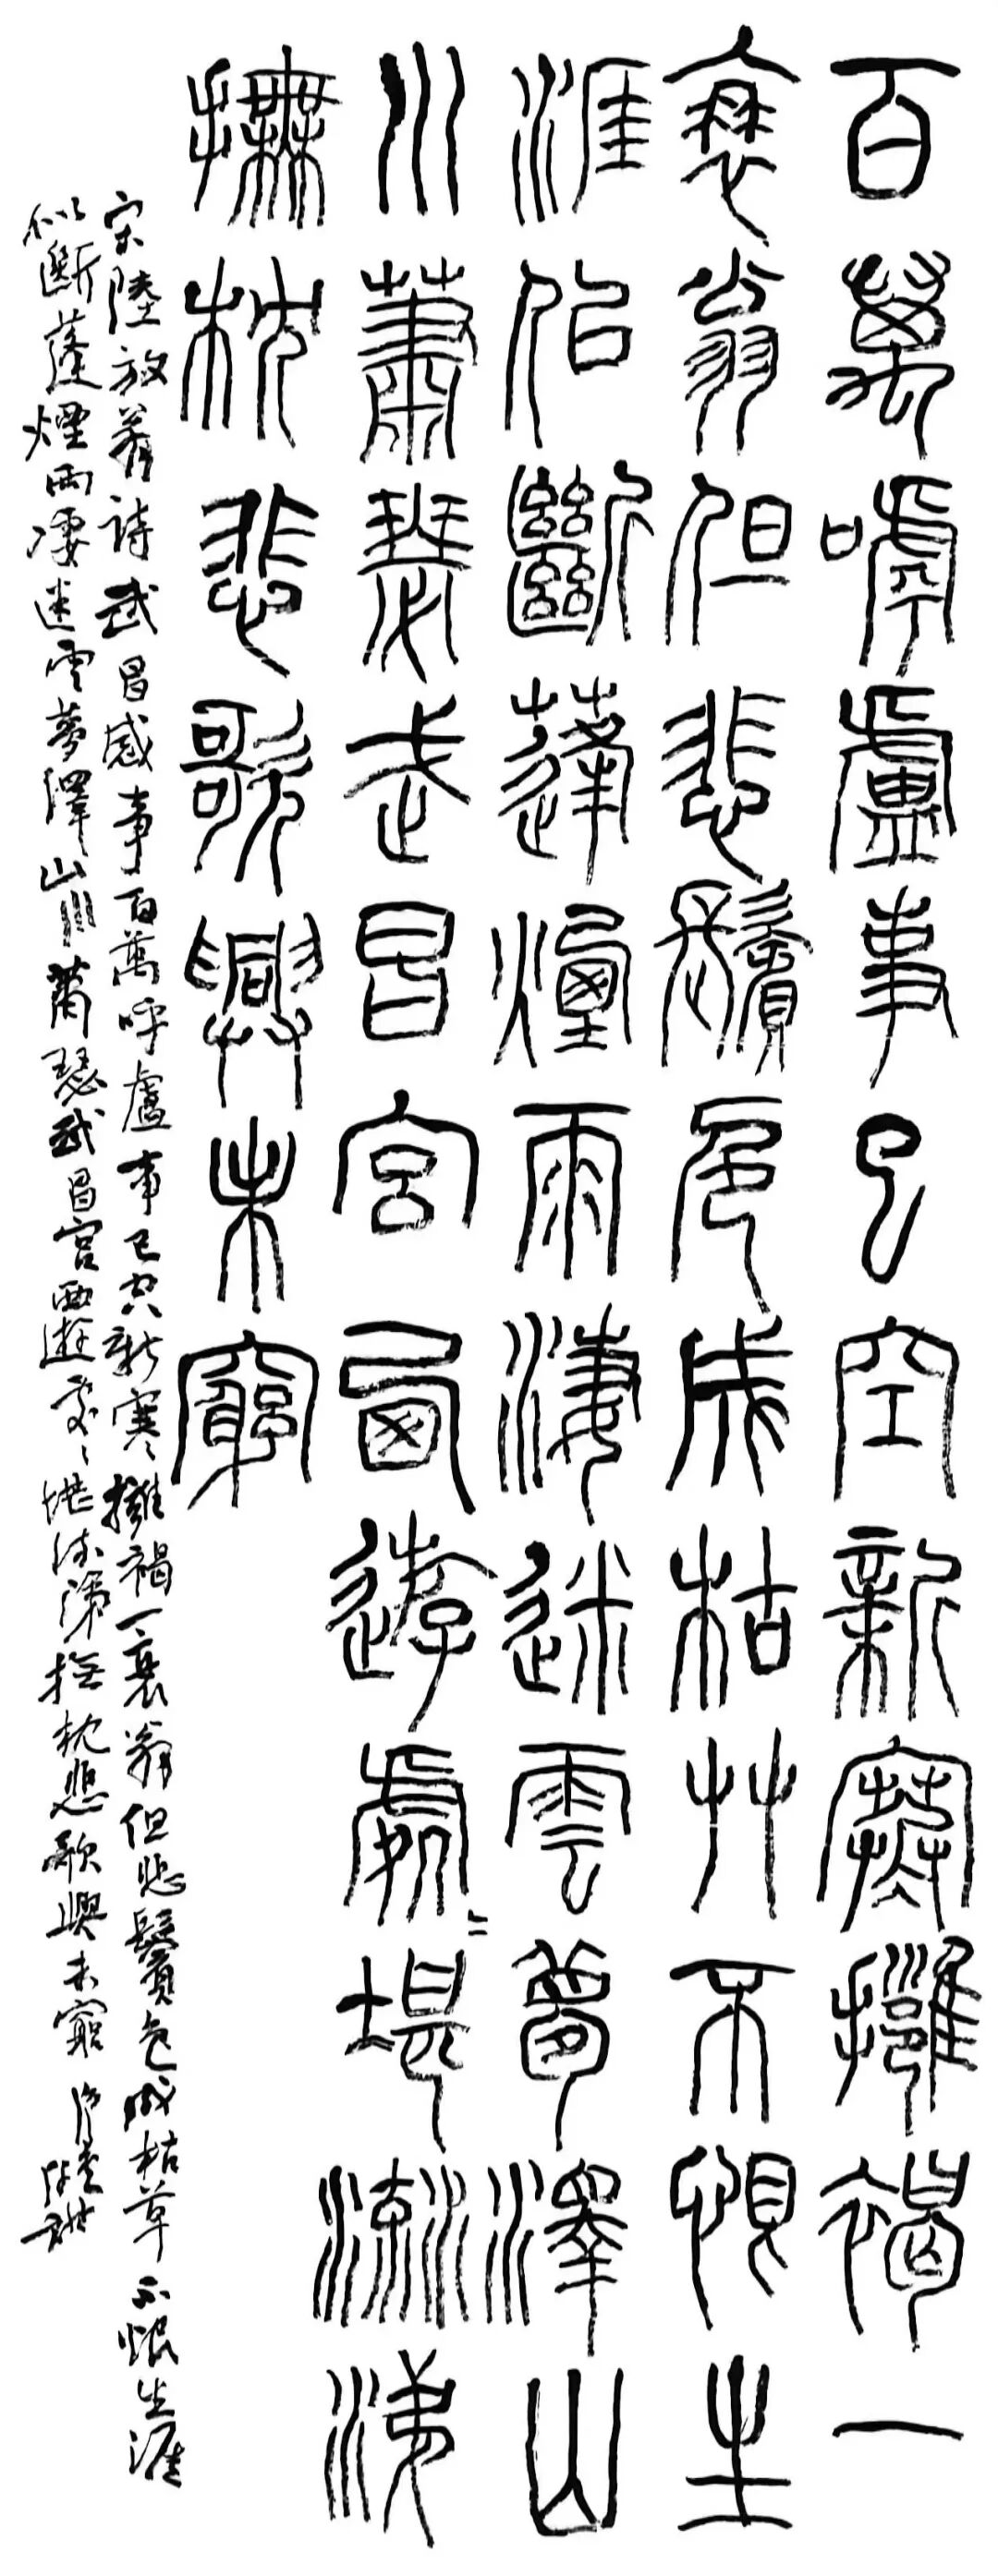 百萬嘑盧事已空新寒擁褐一
衰翁但悲鬢色成枯艸不恨生
涯佀斷蓬煙雨淒迷雲夢澤山
川蕭瑟武昌宮西遊處〻堪流涕
撫枕悲歌興未窮
宋陸放翁詩武昌感事百萬呼盧事已空新寒擁褐一衰翁但悲鬢色成枯草不恨生涯
似斷蓬煙雨淒迷雲夢澤山川蕭瑟武昌宮西遊處〻堪流涕撫枕悲歌興未窮